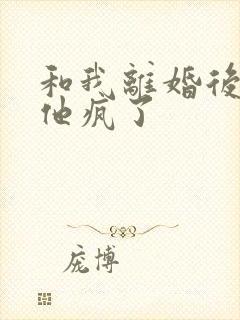 和我離婚後
他瘋了
庞博